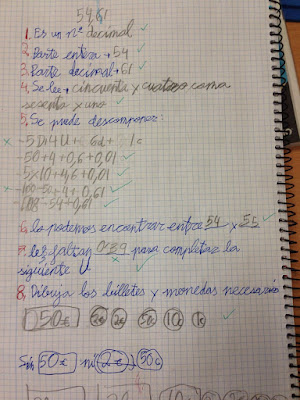 54,61
1. Es un nº decimal
2. Parte entera → 54
3. Parte decimal → 61
4. Se lee → cincuenta y cuatro coma
sesenta y uno
5. Se puede descomponer:
-5D+4U+ 6d+ 1c
-50+4+0,6+0,01
-5x10+4+0,6+0,01
-100-50+4+0,61
-54+0,61
6. lo podemos encontrar entre 54 y 55
7. le faltan 0'39 para completar la
siguiente U.
8. Dibuja los billetes y monedas necesario
50€ 2€ 2€ 50c 10c 1c
Sin 50€ ni 2€, 50c